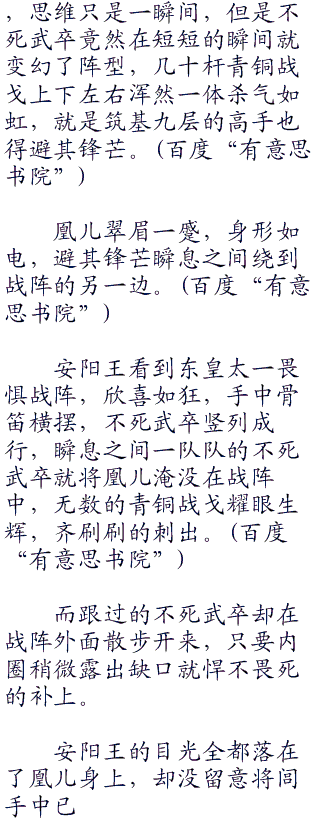 ，思维只是一瞬间，但是不
死武卒竟然在短短的瞬间就
变幻了阵型，几十杆青铜战
戈上下左右浑然一体杀气如
虹，就是筑基九层的高手也
得避其锋芒。(百度“有意思
书院”)
凰儿翠眉一蹙，身形如
电，避其锋芒瞬息之间绕到
战阵的另一边。(百度“有意
思书院”)
安阳王看到东皇太一畏
惧战阵，欣喜如狂，手中骨
笛横摆，不死武卒竖列成
行，瞬息之间一队队的不死
武卒就将凰儿淹没在战阵
中，无数的青铜战戈耀眼生
辉，齐刷刷的刺出。(百度
“有意思书院”)
而跟过的不死武卒却在
战阵外面散步开来，只要内
圈稍微露出缺口就悍不畏死
的补上。
安阳王的目光全都落在
了凰儿身上，却没留意将闾
手中已